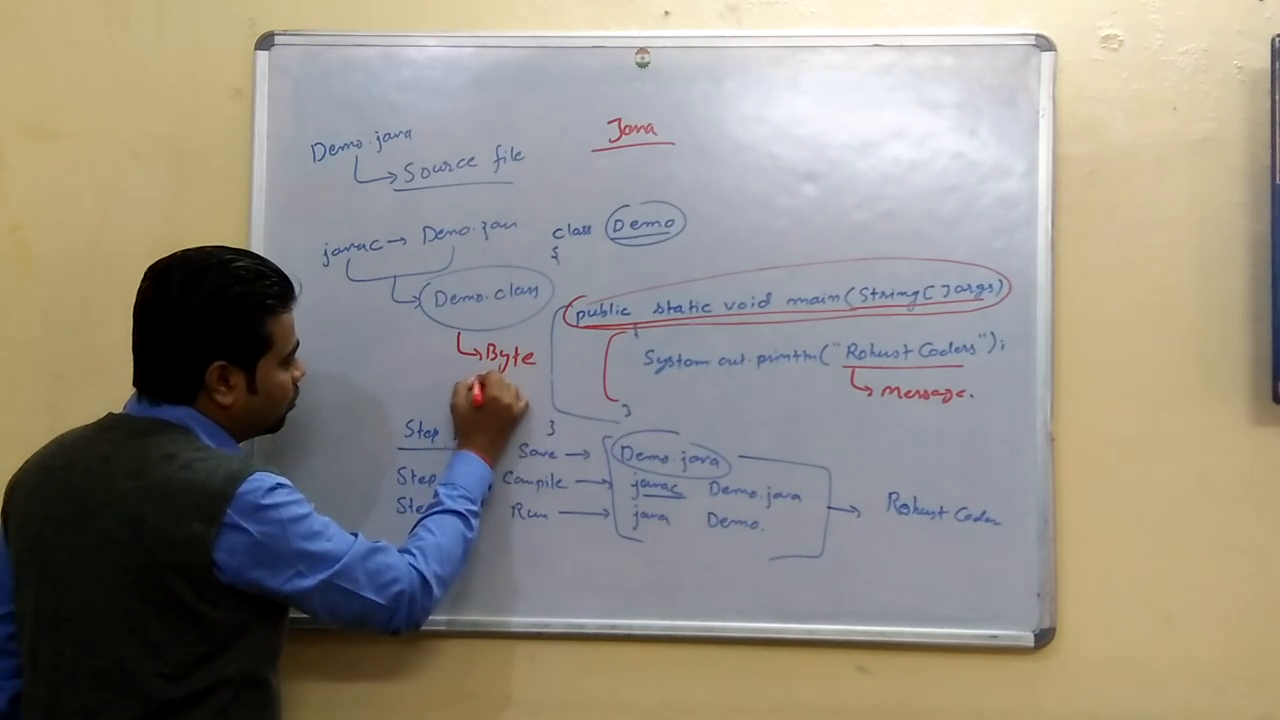 Java
Demo.java
Source file
javac → Demo.java
Demo.class
Byte
class Demo
{
public static void main(String[]args)
{
System.out.println("Robust Coders");
Message.
}
}
Step
Save → Demo.java
Step Compile → javac Demo.java
Ste Run → java Demo.
→ Robust Coder